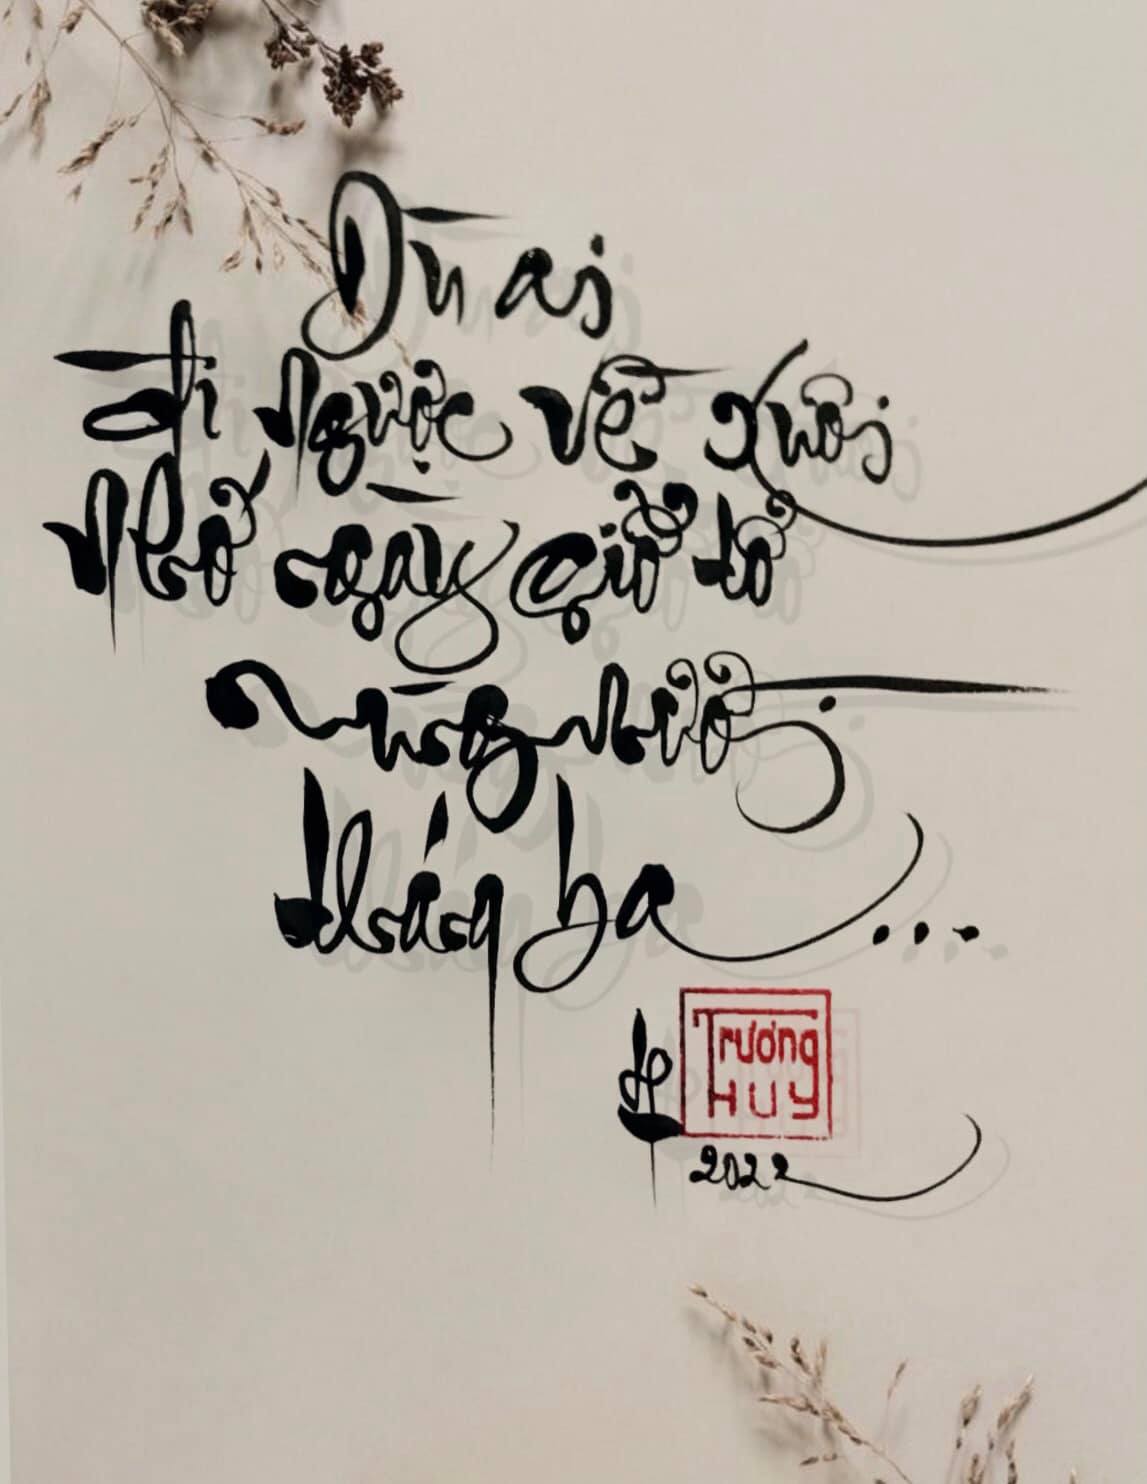 Dù ai
đi ngược về xuôi
Nhớ ngày giỗ tổ
mùng Mười
tháng ba...
TRƯƠNG
HUY
2022